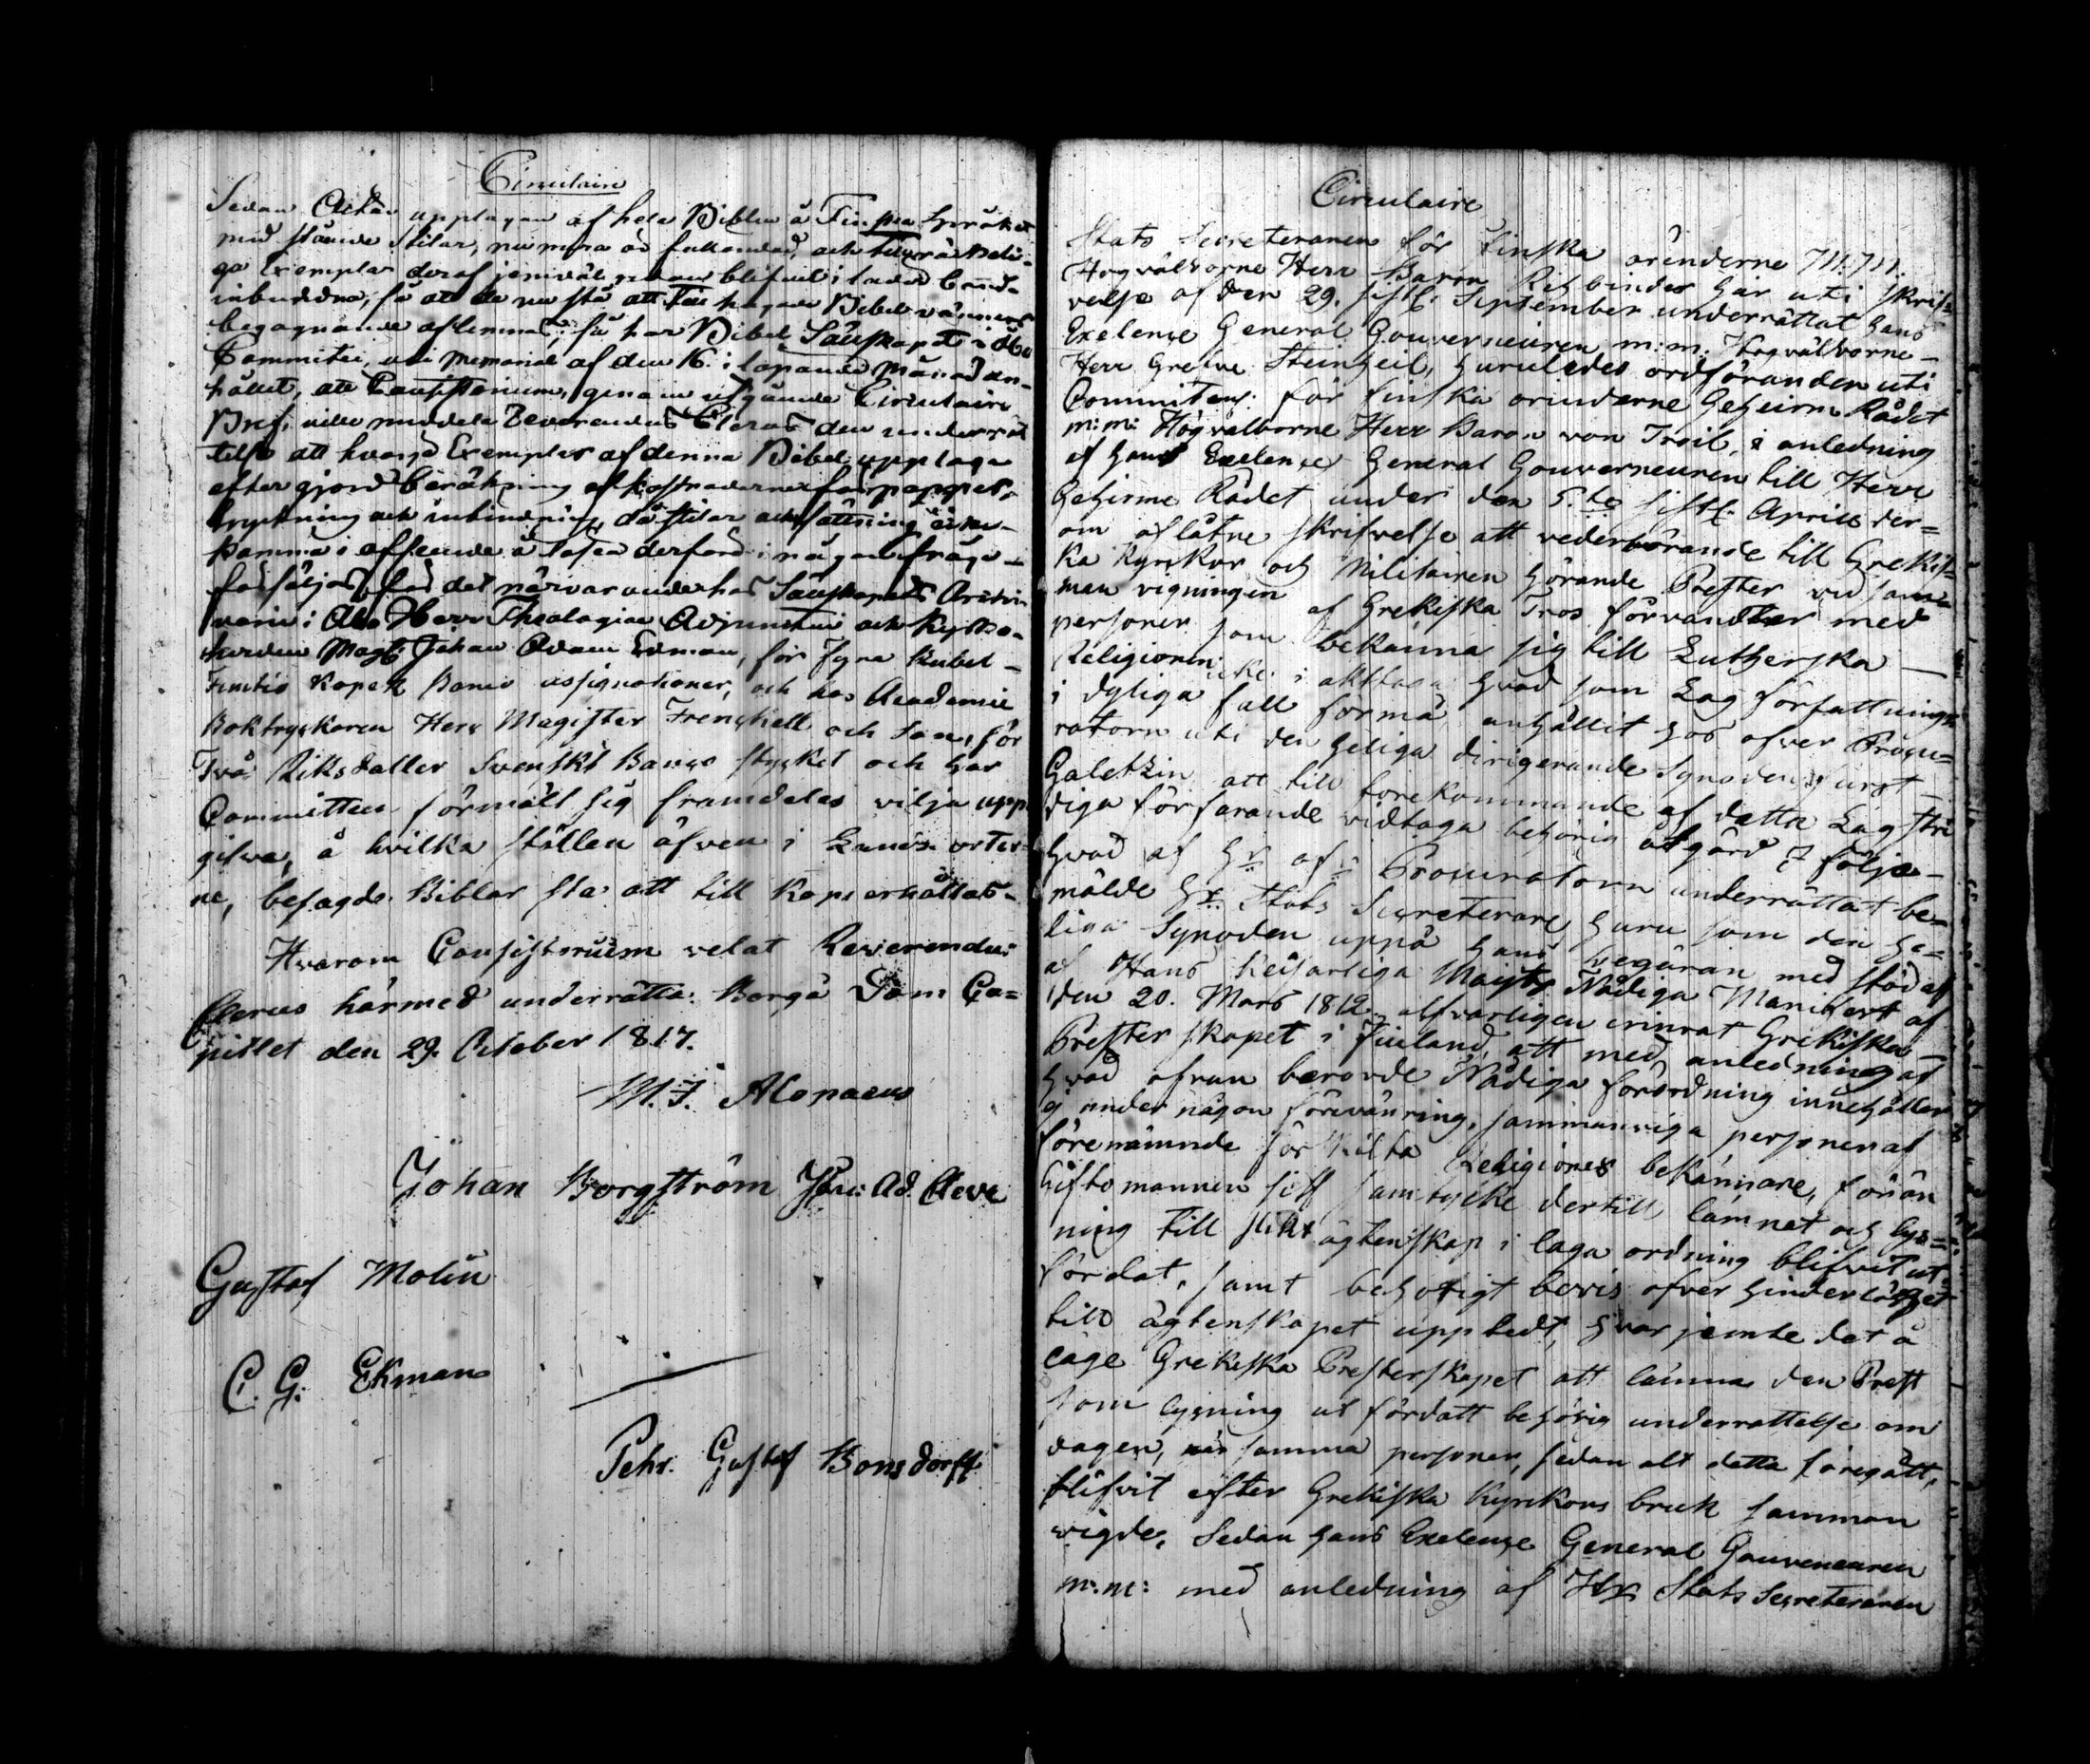 Circulaire
Sedan Octav upplagan af hela Biblen å Finska Språket
med stående Stilar, nu mera är fullendad, och tillgräckeli-
ga Exemplar deraf jemväl redan blifvit i band
inbundna, så att de nu stå att Bibelvänners
begagnande aflemnas; så har Bibel Sällskapets i Åbo
Committée, uti Memorial af den 16. i löpande Månad an-
hållit, att Consistorium, genom utgående Circulaire
Bref, ville meddela Reverendus Clerus den underrät
telse att hvarje Exemplar af denna Bibel upplaga
efter gjord beräkning af kostnaderne för papper,
tryckning och inbindning, då stilar och sättning ej
komma i afseende å derföre i någon fråga
försäljes, för det närvarande hos Sällskapets
i Åbo Herr Theologiae Adjuncten och Kyrko-
herden Mag: Johan Adam Edman, för Fyra Rubel
Femtio Kopek Banco assignationer, och hos Academie
Boktryckaren Herr Magister Frenckell och Son, för
Två Riksdaller Svenskt Banco stycket och har
Committeen förmält sig framdeles vilja upp
gifva, å hvilka ställen äfven i Lands orter-
ne, besagde Biblar stå att till köps erhållas.
Hvarom Consistorium velat Reverendus
Clerus härmed underrätta. Borgå Dom Ca=
pitlet den 29. October 1817.
M. J. Alopaeus
Johan Borgström Joh: Ad. Cleve
Gustaf Molin
C. G. Ekman
Pehr Gustaf Bonsdorff
Circulaire
Stats Secreteraren för Finska ärenderne M.M.
Högvälborne Herr Baron Rehbinder har uti skrif=
velse af den 29. sistl. September underrättat hans
Exelence General Gouverneuren m:m: Högvälborne
Herr Grefve Steinheil, huruledes ordföranden uti
Committeen för finska ärenderne Geheime Rådet
m:m: Högvälborne Herr Baron von Troil, i anledning
af hans Exelence General Gouverneuren till Herr
Geheime Rådet under den 5.te sistl. April der=
om aflåtne skrifvelse att vederbörande till Grekis=
ka Kyrkor och Militairen hörande Prester vid sam=
man vigningen af Grekiska Tros förvandter med
personer som bekänna sig till Lutherska
Religionen icke i akttaga hvad som Lag författningar
i dyliga fall förmå anhållit hos öfver Procu=
ratorn uti den heliga dirigerande Synoden Furst
Galetzin att till förekommande af detta Lag stri
diga förfarande vidtaga behörig åtgärd I följe
hvad af Hr öf: Procuratorn underrättat be=
mälde Hr Stats Secreterare huru som den he=
liga Synoden uppå hans begäran med stöd af
af Hans Keiserliga Maijts Nådiga Manifest af
den 20. Mars 1812. alfvarligen erinrat Grekiska
Presterskapet i Finland, att med anledning af
hvad ofvan berörde Nådiga förordning innehåller
ej under någon förevänning, sammanviga personer af
förenämnde särskilta Religioners bekännare, förän
Giftomannen sitt samtycke dertill lämnat och lys=
ning till slikt ägtenskap i laga ordning blifvit ut
färdat, samt behörigt bevis öfver hinderlöshet
till ägtenskapet uppteedt, hvar jemte det å
läge Grekiska Presterskapet att lämna den Prest
som lysning utfärdatt behörig underrättelse om
dagen, när samma personer, sedan alt detta föregått,
blifvit efter Grekiska Kyrkans bruk samman
vigde, Sedan hans Exelence General Gouverneuren
m:m: med anledning af Hr Stats Secreteraren